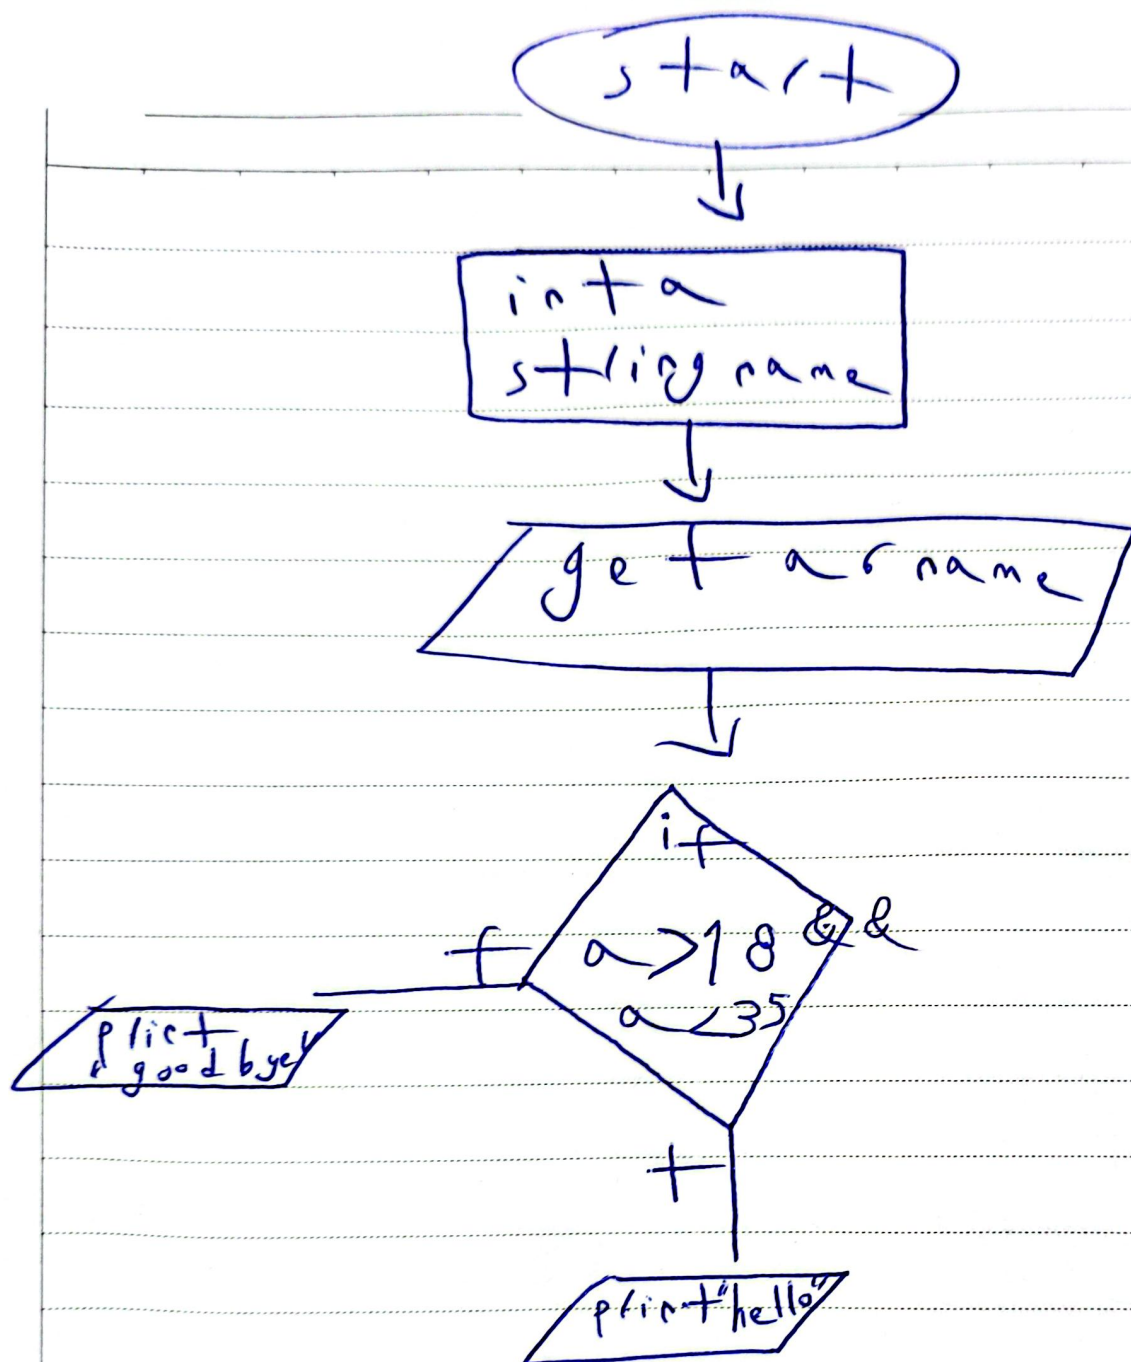 start
int a
string name
get a, name
if
a>18 &&
a<35
f
print
"goodbye"
t
print "hello"